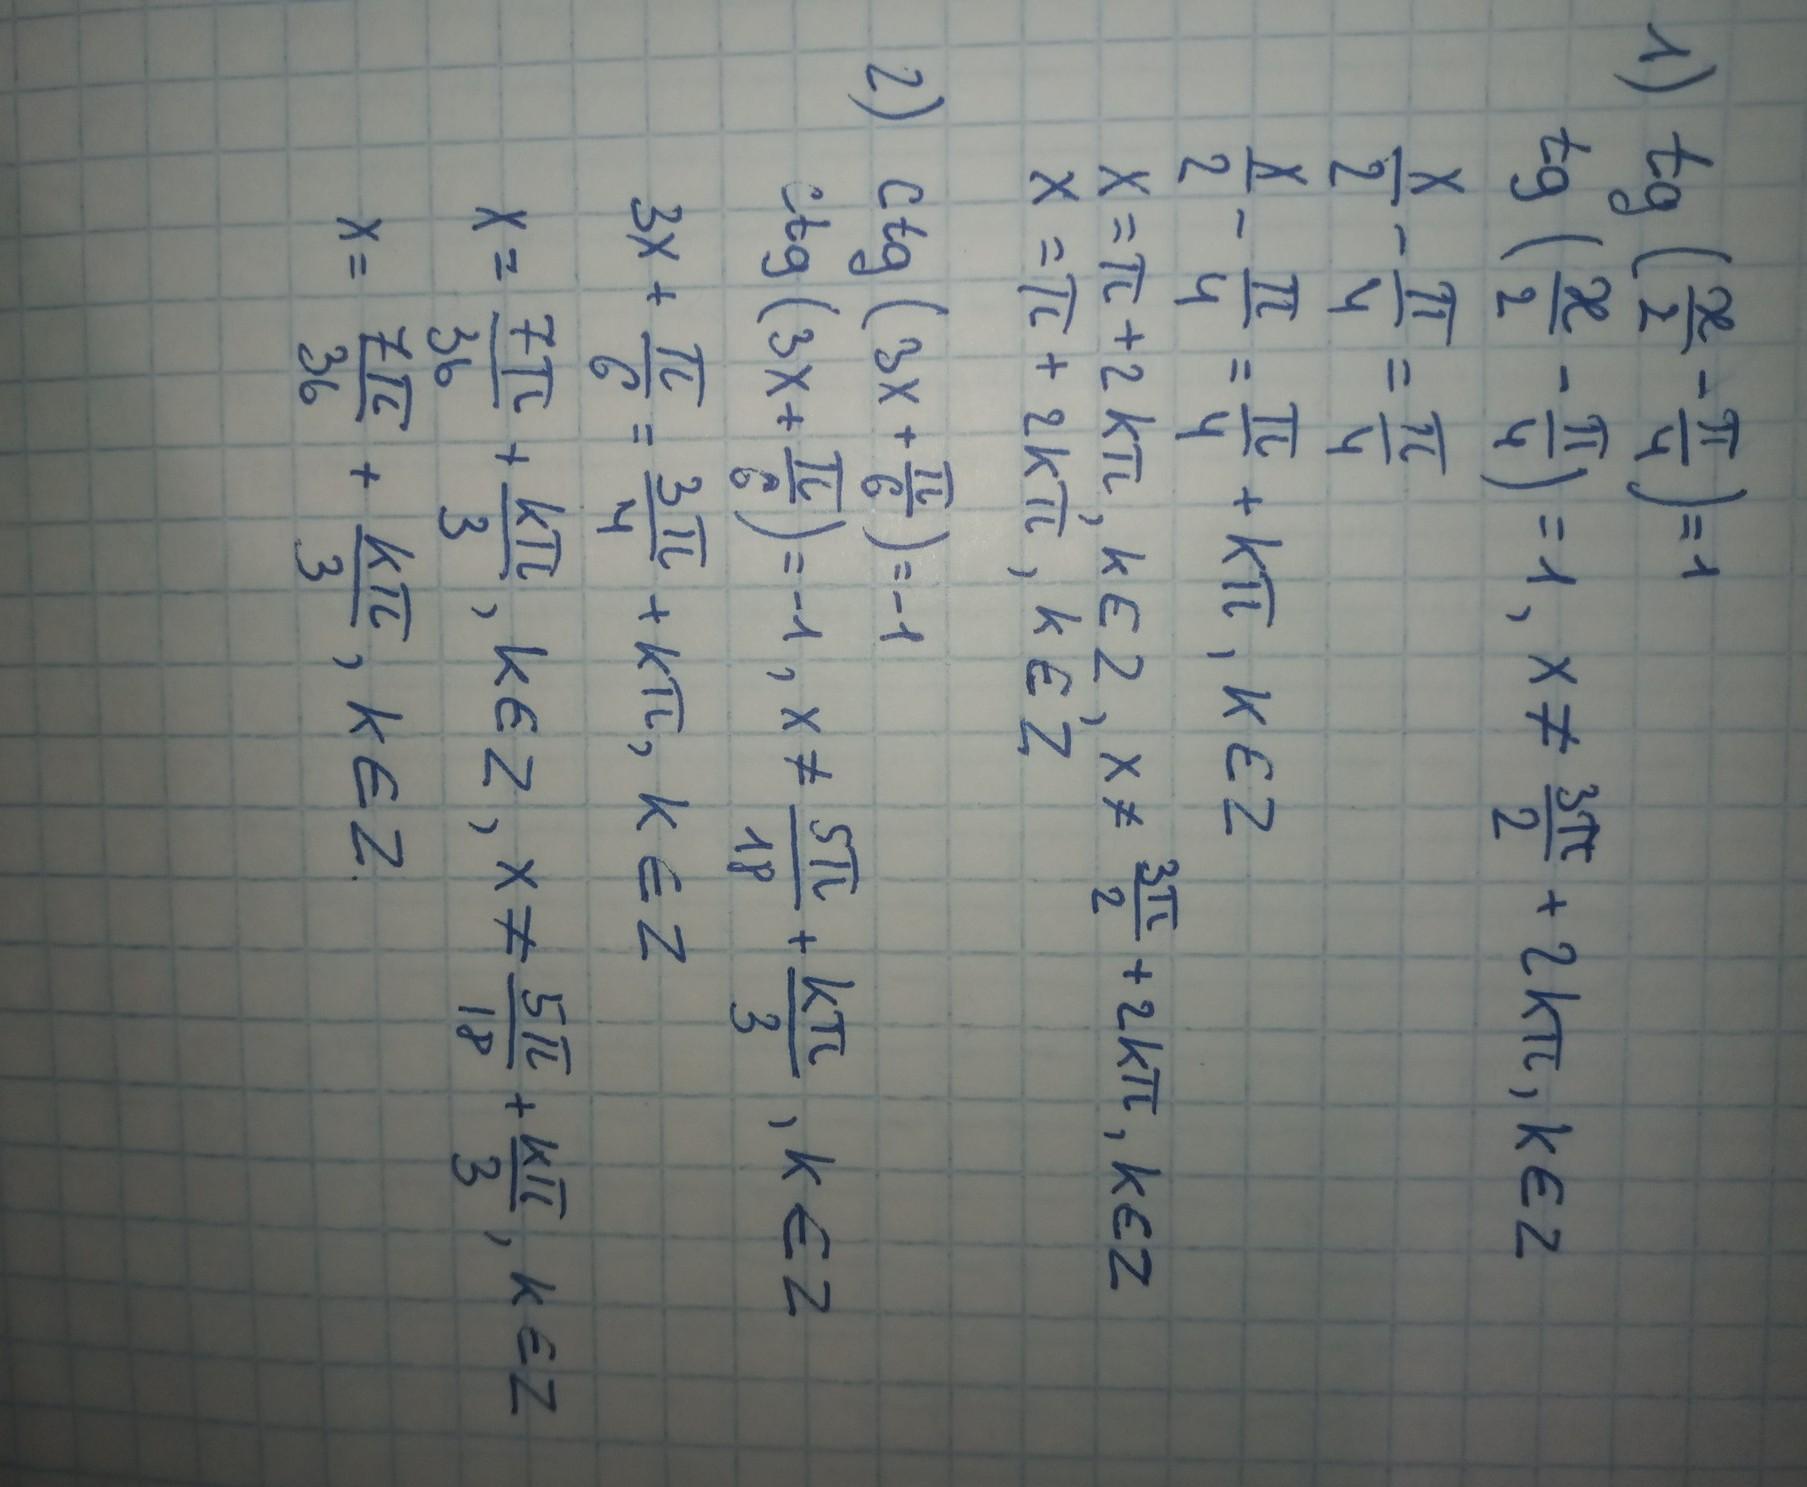 1) tg(x/2 - π/4) = 1
tg(x/2 - π/4) = 1, x ≠ 3π/2 + 2kπ, k∈Z
x/2 - π/4 = π/4
x/2 - π/4 = π/4 + kπ, k∈Z
x = π + 2kπ, k∈Z, x ≠ 3π/2 + 2kπ, k∈Z
x = π + 2kπ, k∈Z
2) ctg(3x + π/6) = -1
ctg(3x + π/6) = -1, x ≠ 5π/18 + kπ/3, k∈Z
3x + π/6 = 3π/4 + kπ, k∈Z
x = 7π/36 + kπ/3, k∈Z, x ≠ 5π/18 + kπ/3, k∈Z
x = 7π/36 + kπ/3, k∈Z.